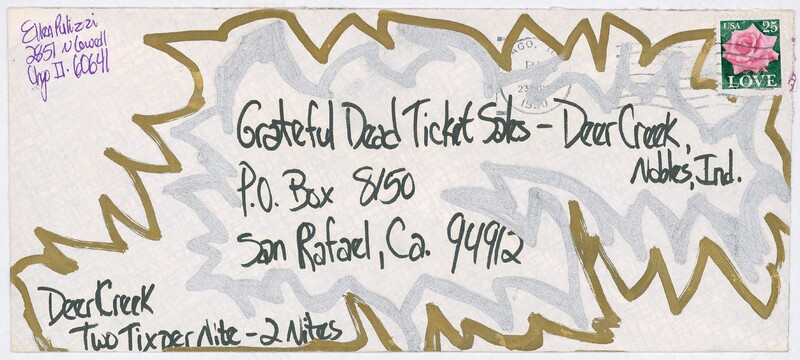 2651 N Lowell
Chgo Il. 60641
USA 25
LOVE
AGO, I
1990
Grateful Dead Ticket Sales - Deer Creek,
Nobles, Ind.
P.O. Box 8150
San Rafael, Ca. 94912
Deer Creek
Two Tix per Nite - 2 Nites